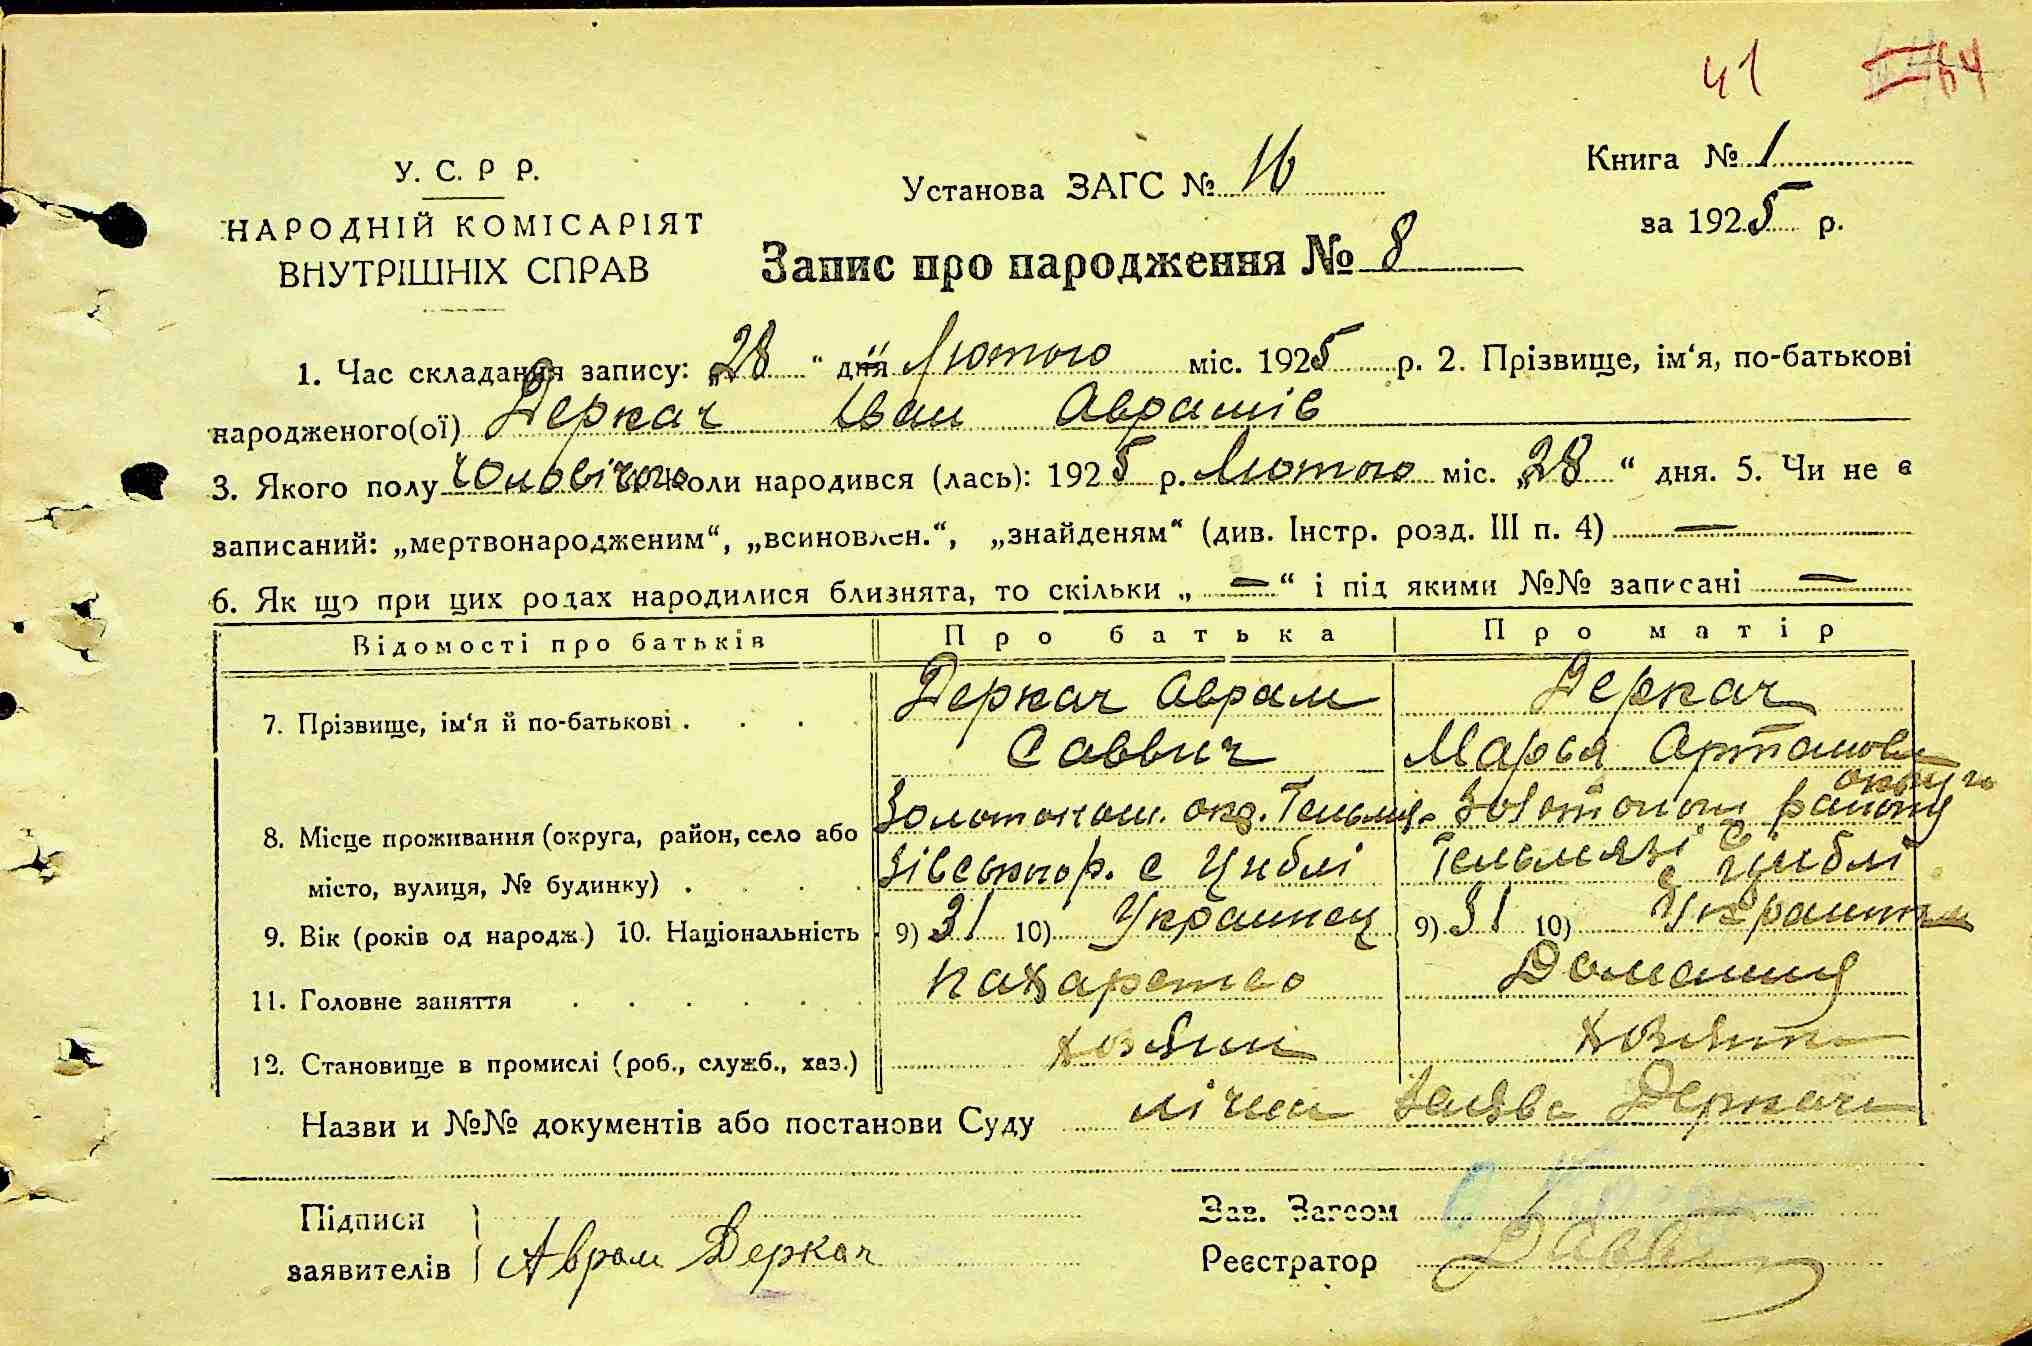 41
У. С. Р Р.
НАРОДНІЙ КОМІСАРІЯТ
ВНУТРІШНІХ СПРАВ
Установа ЗАГС № 16
Книга № 1
за 1925 р.
Запис про народження № 8
1. Час складання запису: „28“ дня Лютого міс. 1925 р. 2. Прізвище, ім‘я, по-батькові
народженого(ої) Деркач Іван Аврамів
3. Якого полу Чоловічого Коли народився (лась): 1925 р. Лютого міс. „28“ дня. 5. Чи не є
записаний: „мертвонародженим“, „всиновлен.“, „знайденям“ (див. Інстр. розд. III п. 4) —
6. Як що при цих родах народилися близнята, то скільки „ — “ і під якими №№ записані —
Відомості про батьків Про батька Про матір
7. Прізвище, ім‘я й по-батькові . . . Деркач Аврам Деркач
Саввич Марья
8. Місце проживання (округа, район, село або Золотонош. окр. Гельмя- Золотонош округи району
місто, вулиця, № будинку) . . . . зівськ р. с Циблі Гельмязі с Циблі
9. Вік (років од народж.) 10. Національність 9) 31 10) Украинец 9) 31 10) Украинка
11. Головне заняття . . . . . . пахарство Домашня
12. Становище в промислі (роб., служб., хаз.) хозяин
Назви и №№ документів або постанови Суду лічна Заява Деркача
Підписи
заявителів Аврам Деркач
Зав. Загсом
Реєстратор